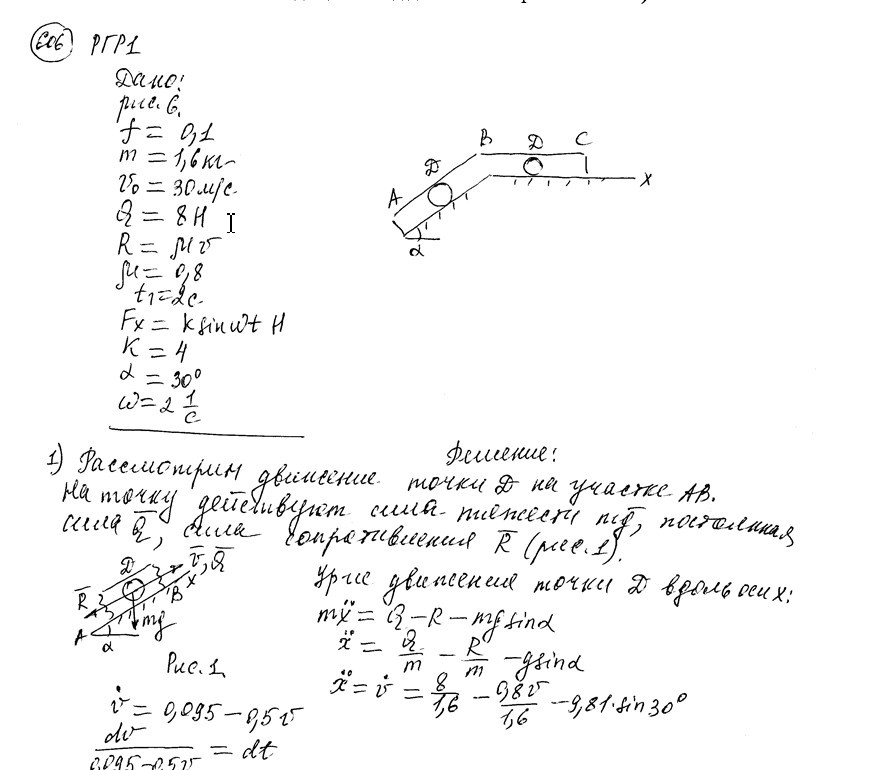 Е06 РГР1
Дано:
рис. 6.
f = 0,1
m = 1,6 кг
v₀ = 30 м/с
Q = 8 Н
R = μv
μ = 0,8
t₁ = 2 с.
Fx = k sin ωt Н
K = 4
α = 30°
ω = 2 1/с
B D C
D
A
x
α
Решение:
1) Рассмотрим движение точки D на участке AB.
На точку действуют сила тяжести mg̅, постоянная
сила Q̅, сила сопротивления R̅ (рис. 1).
D v̅, Q̅
R̅ B x
A α mg
Рис. 1
Ур-ие движения точки D вдоль оси x:
mẍ = Q - R - mg sinα
ẍ = Q/m - R/m - g sinα
ẍ = v̇ = 8/1,6 - 0,8v/1,6 - 9,81·sin 30°
v̇ = 0,095 - 0,5v
dv/(0,095-0,5v) = dt